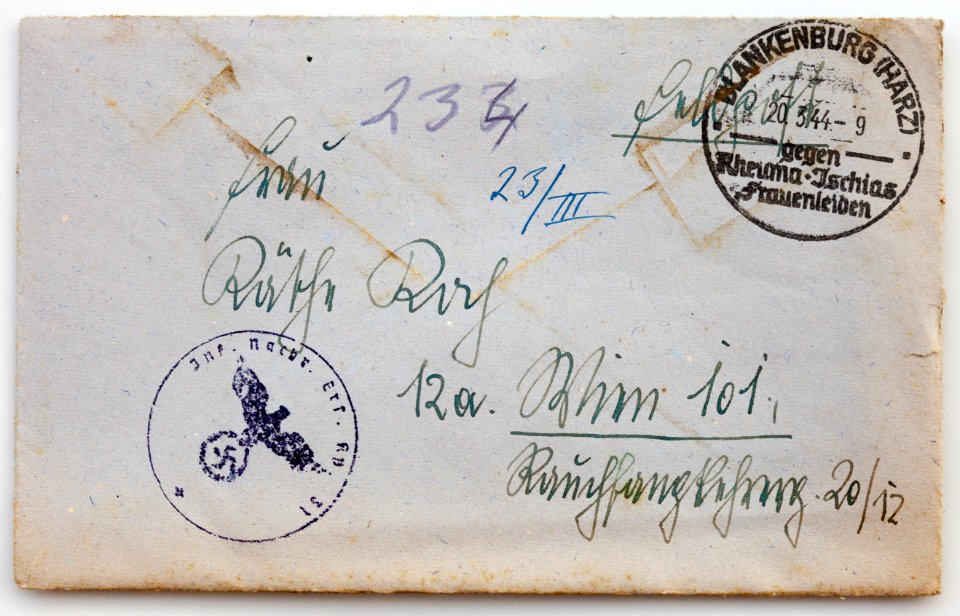 BLANKENBURG (HARZ)
20.3.44.-9
gegen
Rheuma · Ischias
Frauenleiden
Feldpost
23/III
Frau
Käthe Koch
12a. Wien 101,
Rauchfangkehrerg. 20/12
Inf. Nachr. Ers. Kp. 31